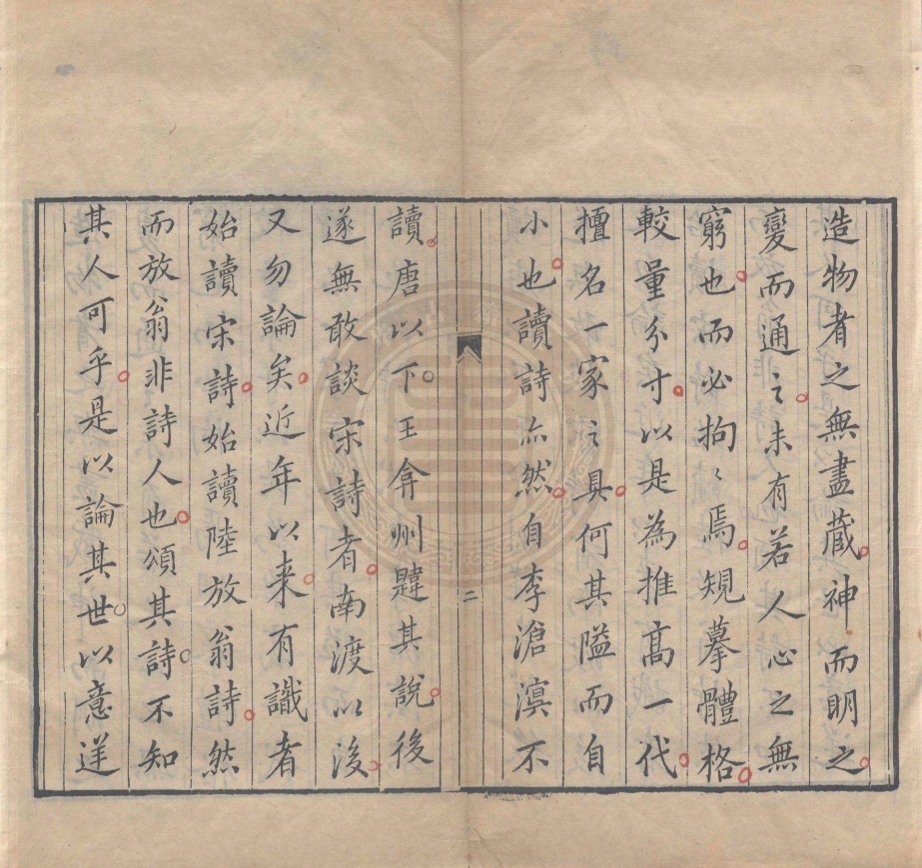 造物者之無盡蔵神而明之
變而通之未有若人心之無
窮也而必拘〻焉規摹體格
較量分寸以是為推髙一代
擅名一家之具何其隘而自
小也讀詩亦然自李滄溟不
二
讀唐以下王弇州韙其說後
遂無敢談宋詩者南渡以後
又勿論矣近年以来有識者
始讀宋詩始讀陸放翁詩然
而放翁非詩人也頌其詩不知
其人可乎是以論其世以意逆